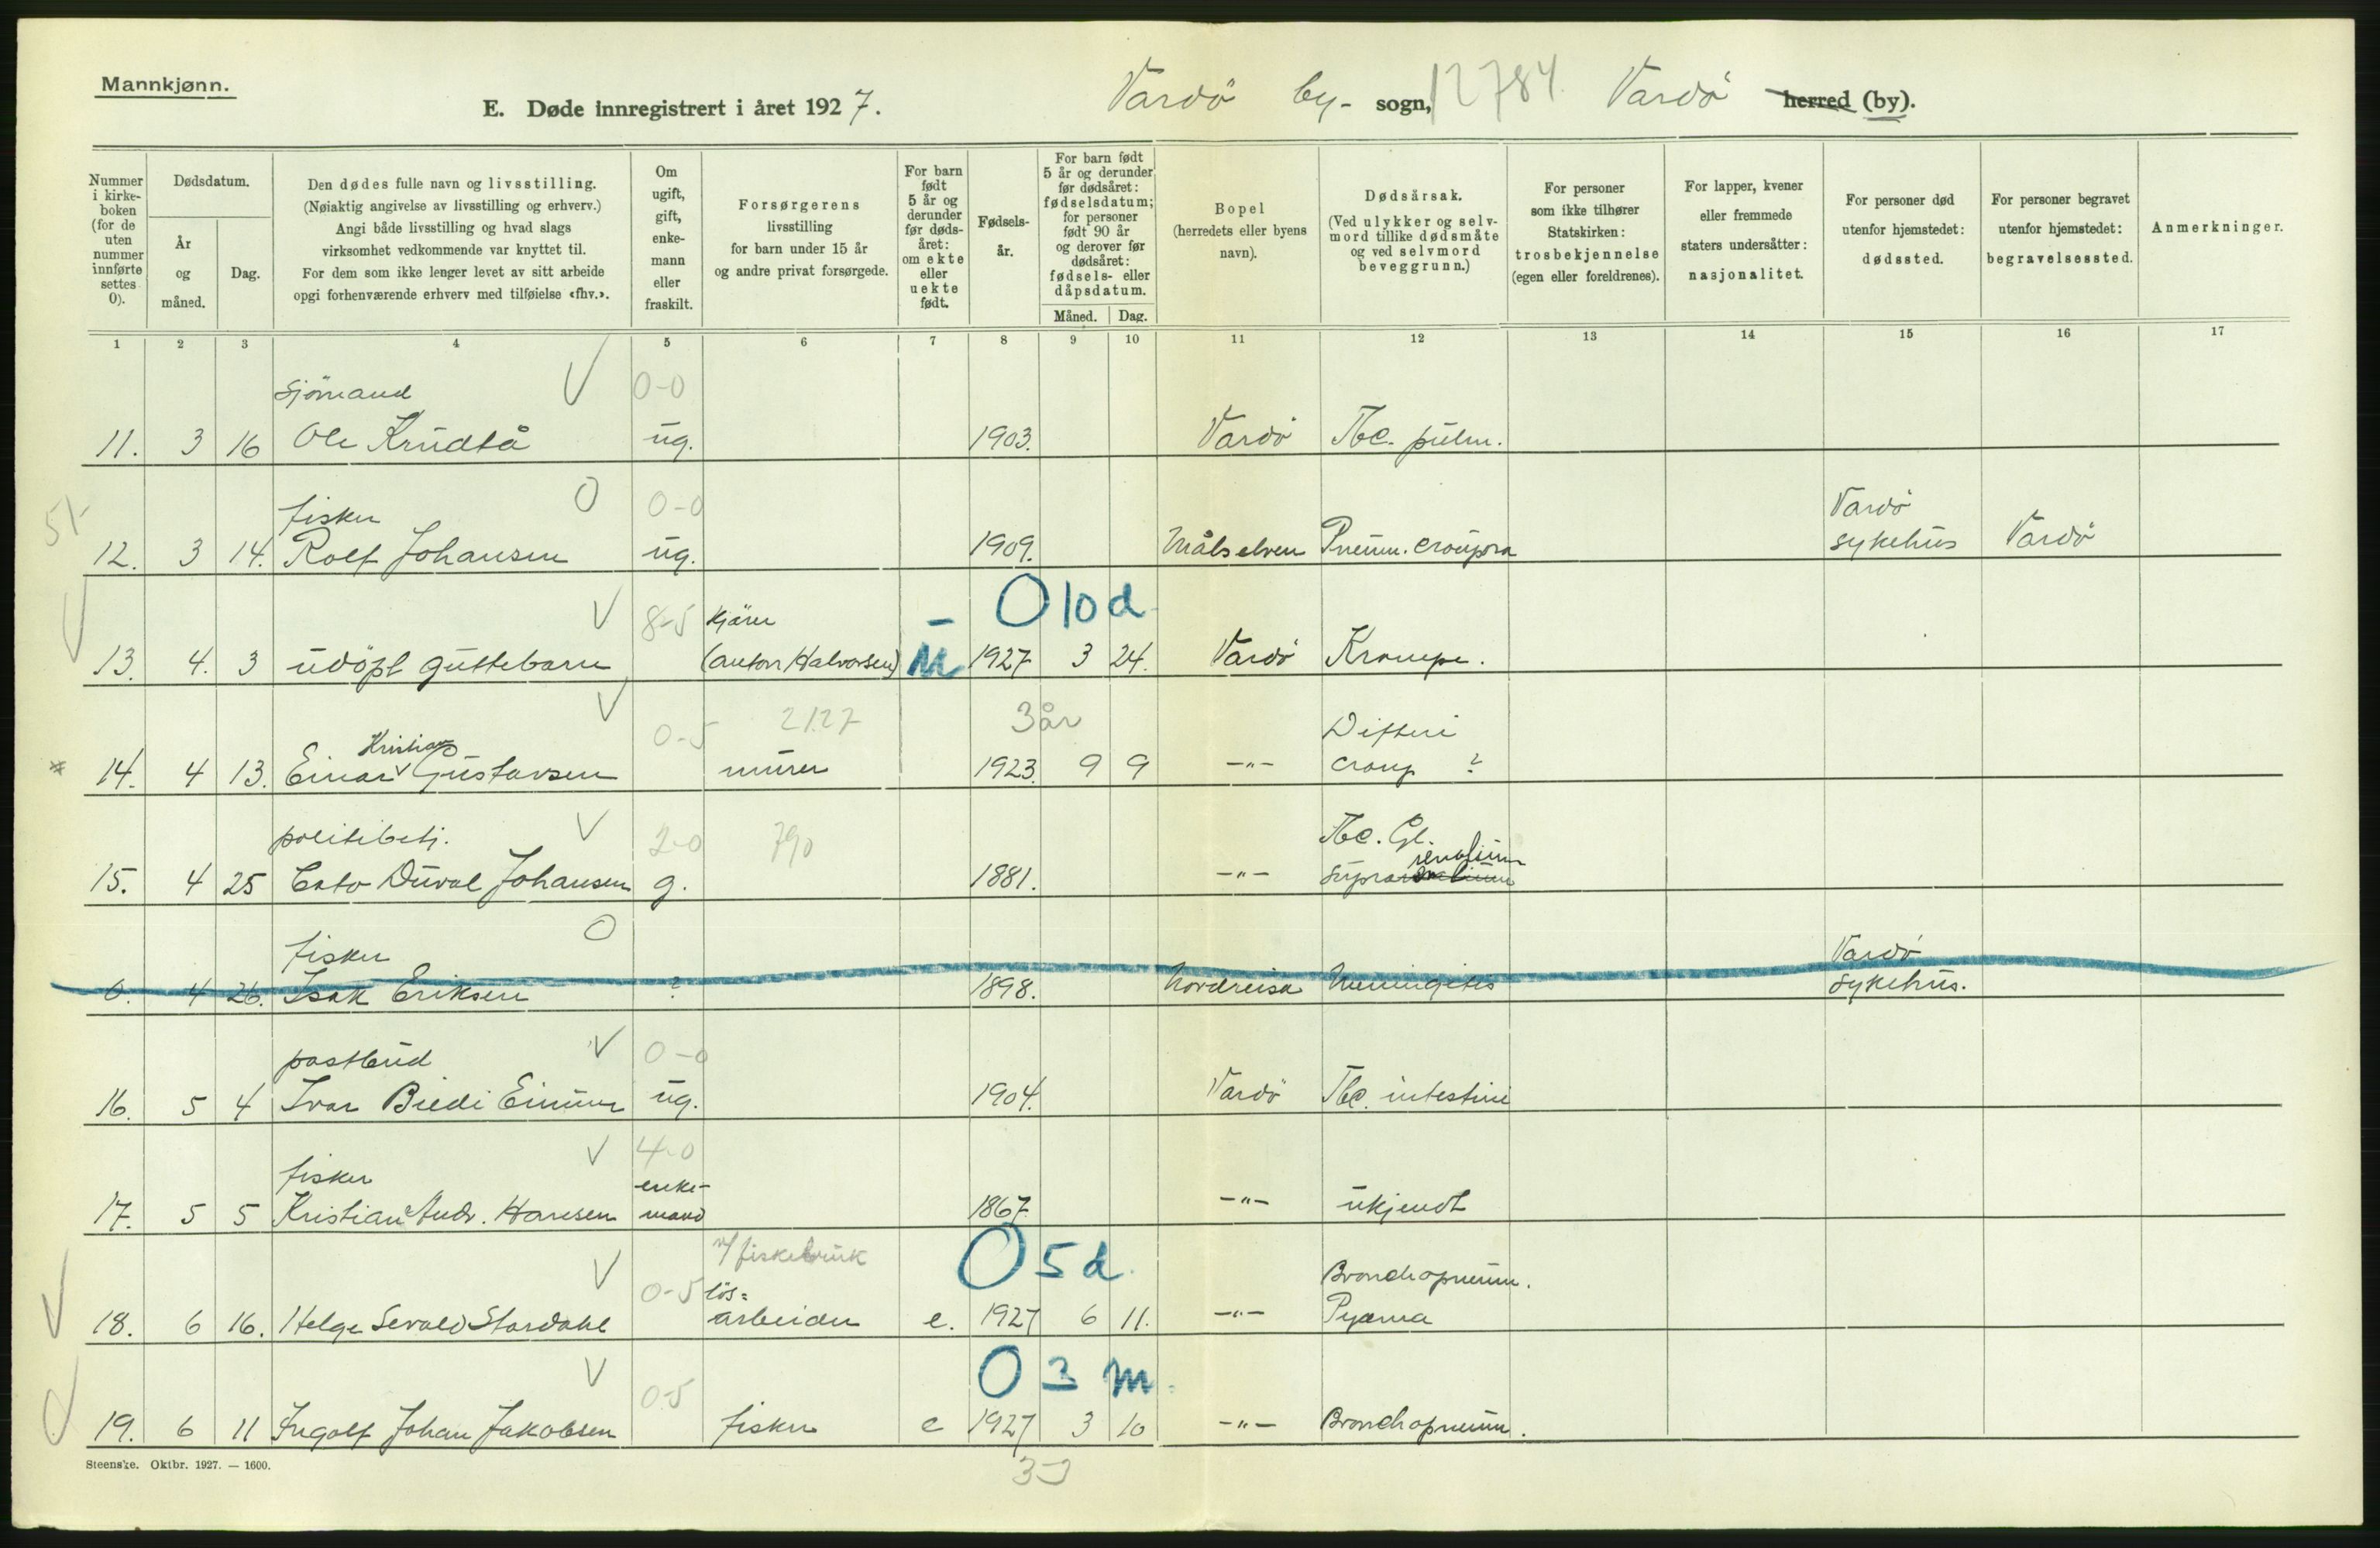 Mannkjønn.
E. Døde innregistrert i året 1927. Vardö by- sogn, 12784 Vardö herred (by).
Nummer i kirkeboken (for de uten nummer innførte settes 0).
Dødsdatum.
År og måned.
Dag.
Den dødes fulle navn og livsstilling.
(Nøiaktig angivelse av livsstilling og erhverv.)
Angi både livsstilling og hvad slags
virksomhet vedkommende var knyttet til.
For dem som ikke lenger levet av sitt arbeide
opgi forhenværende erhverv med tilføielse «fhv.».
Om ugift, gift, enkemann eller fraskilt.
Forsørgerens
livsstilling
for barn under 15 år
og andre privat forsørgede.
For barn født 5 år og derunder før dødsåret: om ekte eller uekte født.
Fødselsår.
For barn født 5 år og derunder før dødsåret: fødselsdatum; for personer født 90 år og derover før dødsåret: fødsels- eller dåpsdatum.
Måned. Dag.
Bopel
(herredets eller byens
navn).
Dødsårsak.
(Ved ulykker og selvmord tillike dødsmåte og ved selvmord beveggrunn.)
For personer
som ikke tilhører
Statskirken:
trosbekjennelse
(egen eller foreldrenes).
For lapper, kvener
eller fremmede
staters undersåtter:
nasjonalitet.
For personer død
utenfor hjemstedet:
dødssted.
For personer begravet
utenfor hjemstedet:
begravelsessted.
Anmerkninger.
1 2 3 4 5 6 7 8 9 10 11 12 13 14 15 16 17
sjömand V 0-0
11. 3 16 Ole Krudtå ug. 1903. Vardö Tbc. pulm.
51- fisker O 0-0 Vardö
12. 3 14. Rolf Johansen ug. 1909. Målselven Pneum. crouposa sykehus Vardö
V 8-5 kjörer - O 10 d
13. 4. 3 udöpt guttebarn (Anton Halvorsen) u 1927 3 24. Vardö Krampe.
V 0-5 2127 3 år Difteri
Kristian
* 14. 4 13. Einar Gustavsen murer 1923. 9 9 -"- croup ?
politibetj. V 2-0 790 Tbc. Gl.
renalium
15. 4 25 Cato Duval Johansen g. 1881. -"- supra
fisker O Vardö
0. 4 26. Isak Eriksen ? 1898. Nordreisa Meningitis sykehus.
postbud V 0-0
16. 5 4 Ivar Biedi ug. 1904. Vardö Tbc. intestini
fisker V 4-0 enke-
17. 5 5 Kristian Andr. Hansen mand 1867. -"- ukjendt
v/ fiskebruk O 5 d.
V 0-5 lös= Bronchopneum.
18. 6 16. Helge Sevald Stordahl arbeider e. 1927 6 11. -"- Pyæma
V 0-5 O 3 m.
19. 6 11 Ingolf Johan Jakobsen fisker e 1927 3 10 -"- Bronchopneum.
Steenske. Oktbr. 1927. — 1600.